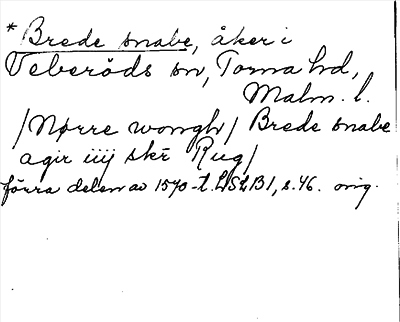 *Brede snabe, åker i
Veberöds sn, Torna hd,
Malm. l.
/Nørre wongh/ Brede snabe
agir iiij skr̄ Rug/
förra delen av 1570-t. LSLB1, s. 46. orig.